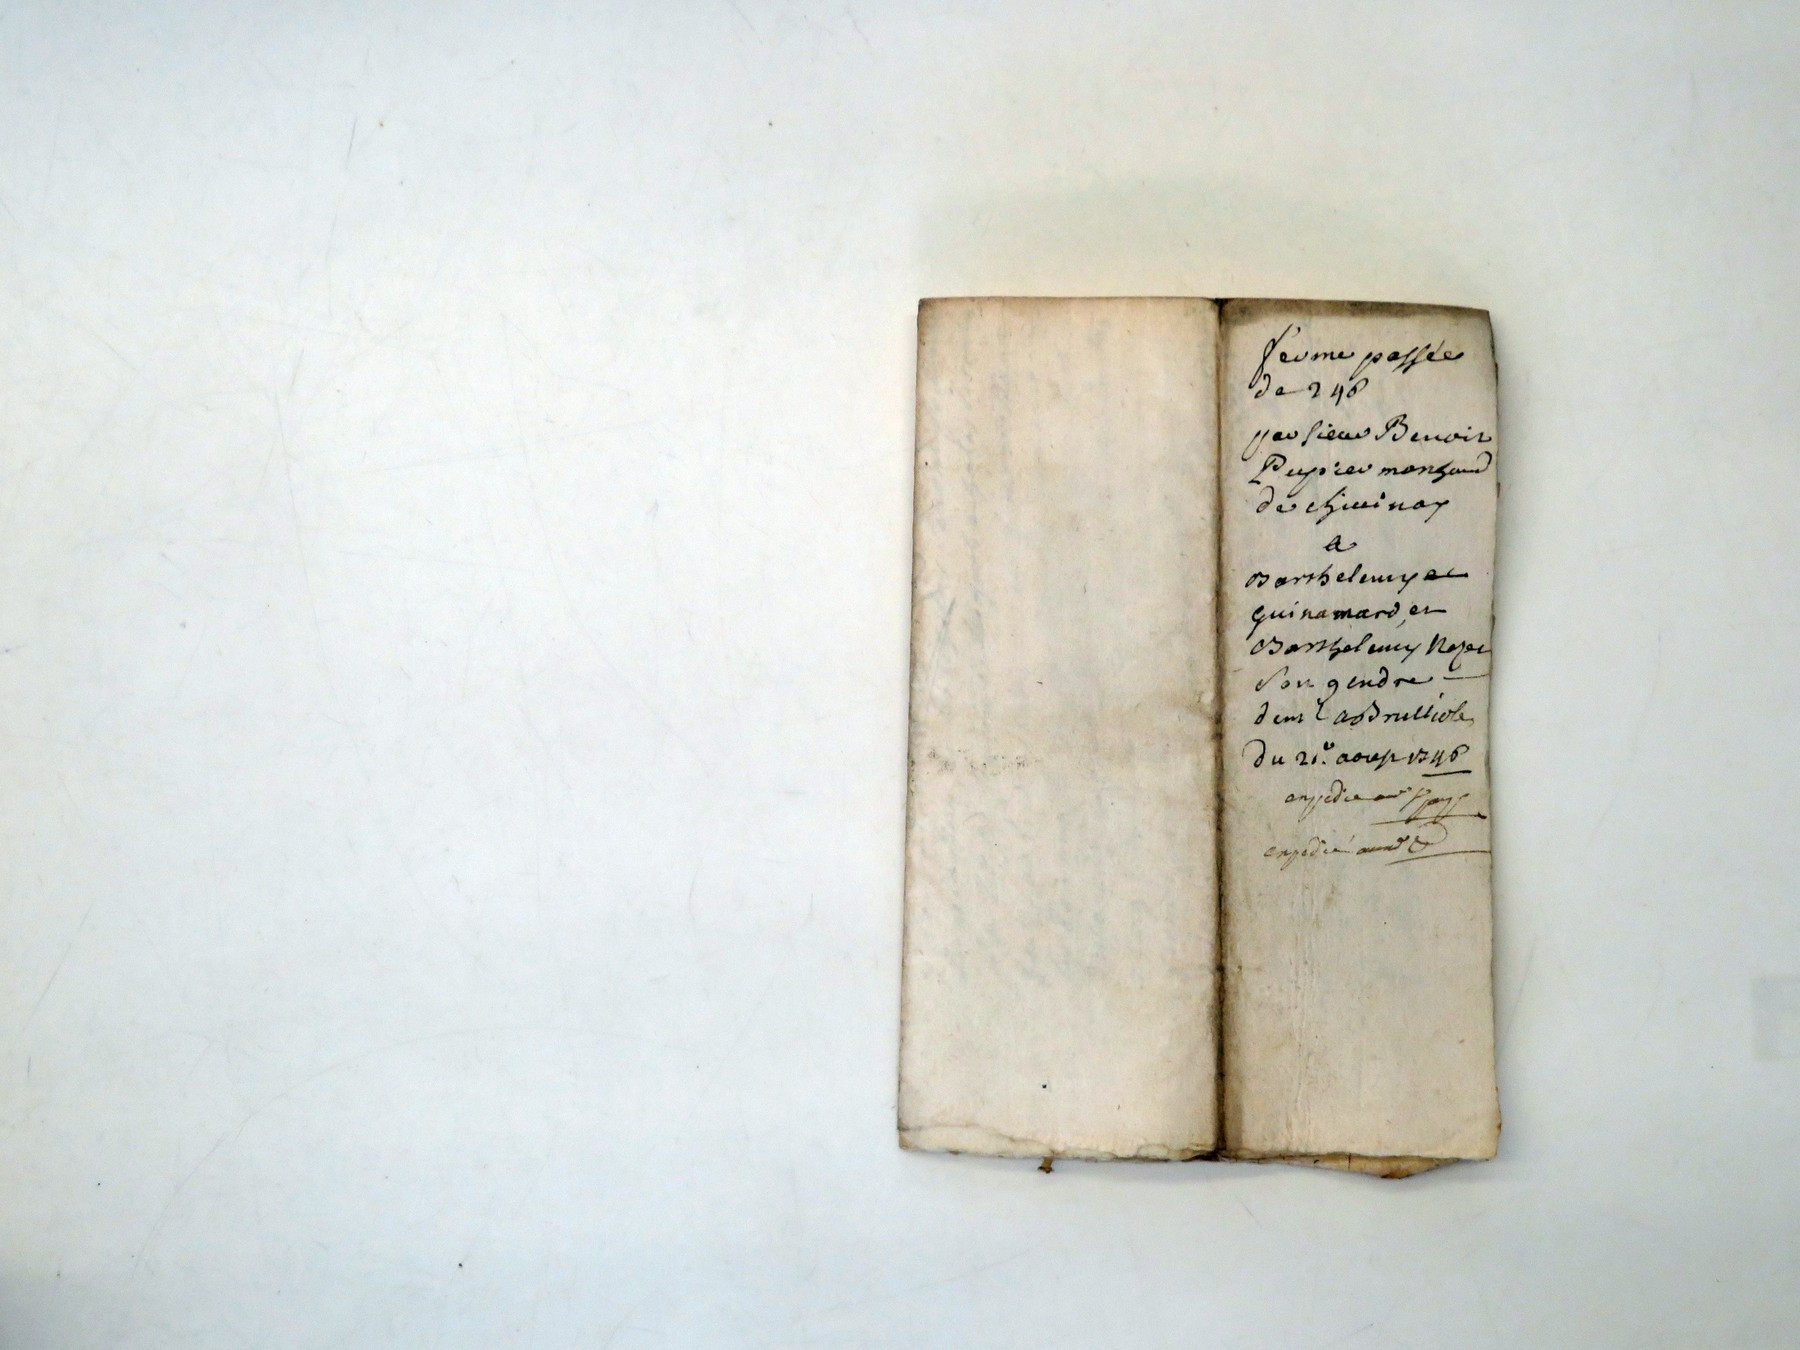 ferme passée
de 246
par sieur Benoit
Pupier marchand
de chevinay
a
Barthelemy
guinamard et
Barthelemy
son gendre
de
du 21e aoust 1746
expedié au
expedié